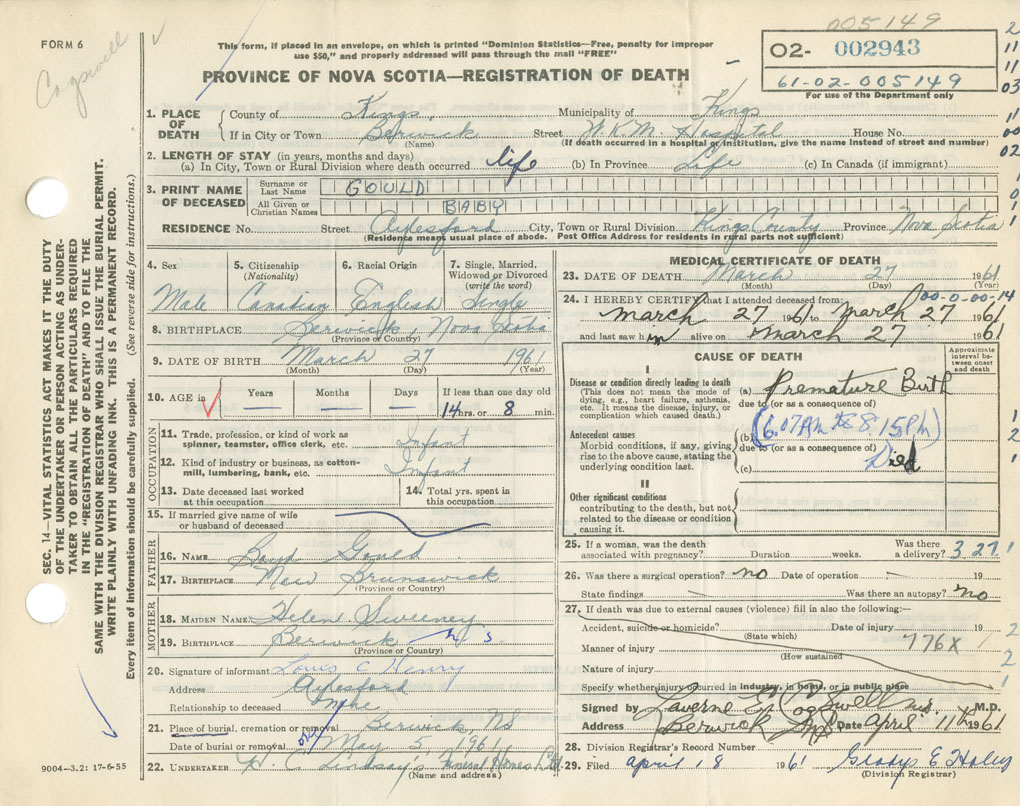 005149
FORM 6
Cogswell
This form, if placed in an envelope, on which is printed "Dominion Statistics—Free, penalty for improper
use $50," and properly addressed will pass through the mail "FREE"
O2- 002943
61-02-005149
For use of the Department only
PROVINCE OF NOVA SCOTIA—REGISTRATION OF DEATH
1. PLACE OF DEATH
County of Kings Municipality of Kings
If in City or Town Berwick Street W.K.M. Hospital House No.
(Name) (If death occurred in a hospital or institution, give the name instead of street and number)
2. LENGTH OF STAY (in years, months and days)
(a) In City, Town or Rural Division where death occurred life (b) In Province Life (c) In Canada (if immigrant)
3. PRINT NAME OF DECEASED
Surname or Last Name GOULD
All Given or Christian Names BABY
RESIDENCE No. Street Aylesford City, Town or Rural Division Kings County Province Nova Scotia
(Residence means usual place of abode. Post Office Address for residents in rural parts not sufficient)
4. Sex 5. Citizenship (Nationality) 6. Racial Origin 7. Single, Married, Widowed or Divorced (write the word)
Male Canadian English Single
8. BIRTHPLACE Berwick, Nova Scotia
(Province or Country)
9. DATE OF BIRTH March 27 1961
(Month) (Day) (Year)
10. AGE in Years Months Days If less than one day old
— — — 14 hrs. or 8 min.
OCCUPATION
11. Trade, profession, or kind of work as
spinner, teamster, office clerk, etc. Infant
12. Kind of industry or business, as cotton-
mill, lumbering, bank, etc. Infant
13. Date deceased last worked
at this occupation
14. Total yrs. spent in
this occupation
15. If married give name of wife
or husband of deceased
FATHER
16. NAME Boyd Gould
17. BIRTHPLACE New Brunswick
(Province or Country)
MOTHER
18. MAIDEN NAME Helen Sweeney
19. BIRTHPLACE Berwick N S
(Province or Country)
20. Signature of informant Louis C Henry
Address Aylesford
Relationship to deceased
21. Place of burial, cremation or removal Berwick NS
Date of burial or removal May 5 1961
22. UNDERTAKER H. C. Lindsay's Funeral Homes Ltd
(Name and address)
9004-3.2: 17-6-55
MEDICAL CERTIFICATE OF DEATH
23. DATE OF DEATH March 27 1961
(Month) (Day) (Year)
00-0-00-14
24. I HEREBY CERTIFY that I attended deceased from:
March 27 1961 to March 27 1961
and last saw him alive on March 27 1961
CAUSE OF DEATH
Approximate interval between onset and death
I
Disease or condition directly leading to death
(This does not mean the mode of
dying, e.g., heart failure, asthenia,
etc. It means the disease, injury, or
complication which caused death.)
(a) Premature Birth
due to (or as a consequence of)
(6.07AM to 8.15PM)
Antecedent causes
Morbid conditions, if any, giving
rise to the above cause, stating the
underlying condition last.
(b)
due to (or as a consequence of)
Died
(c)
II
Other significant conditions
contributing to the death, but not
related to the disease or condition
causing it.
25. If a woman, was the death
associated with pregnancy? Duration weeks. Was there a delivery? 3 27
26. Was there a surgical operation? no Date of operation 19
State findings Was there an autopsy? no
27. If death was due to external causes (violence) fill in also the following:—
Accident, suicide or homicide? Date of injury 19
(State which)
Manner of injury 776X
(How sustained
Nature of injury
Specify whether injury occurred in industry, in home, or in public place
Signed by Laverne E. Cogswell M.D.
Address Berwick NS Date April 11th 1961
28. Division Registrar's Record Number
29. Filed April 18 1961 Gladys E
(Division Registrar)
SEC. 14—VITAL STATISTICS ACT MAKES IT THE DUTY
OF THE UNDERTAKER OR PERSON ACTING AS UNDER-
TAKER TO OBTAIN ALL THE PARTICULARS REQUIRED
IN THE "REGISTRATION OF DEATH" AND TO FILE THE
SAME WITH THE DIVISION REGISTRAR WHO SHALL ISSUE THE BURIAL PERMIT.
WRITE PLAINLY WITH UNFADING INK. THIS IS A PERMANENT RECORD.
Every item of information should be carefully supplied. (See reverse side for instructions.)